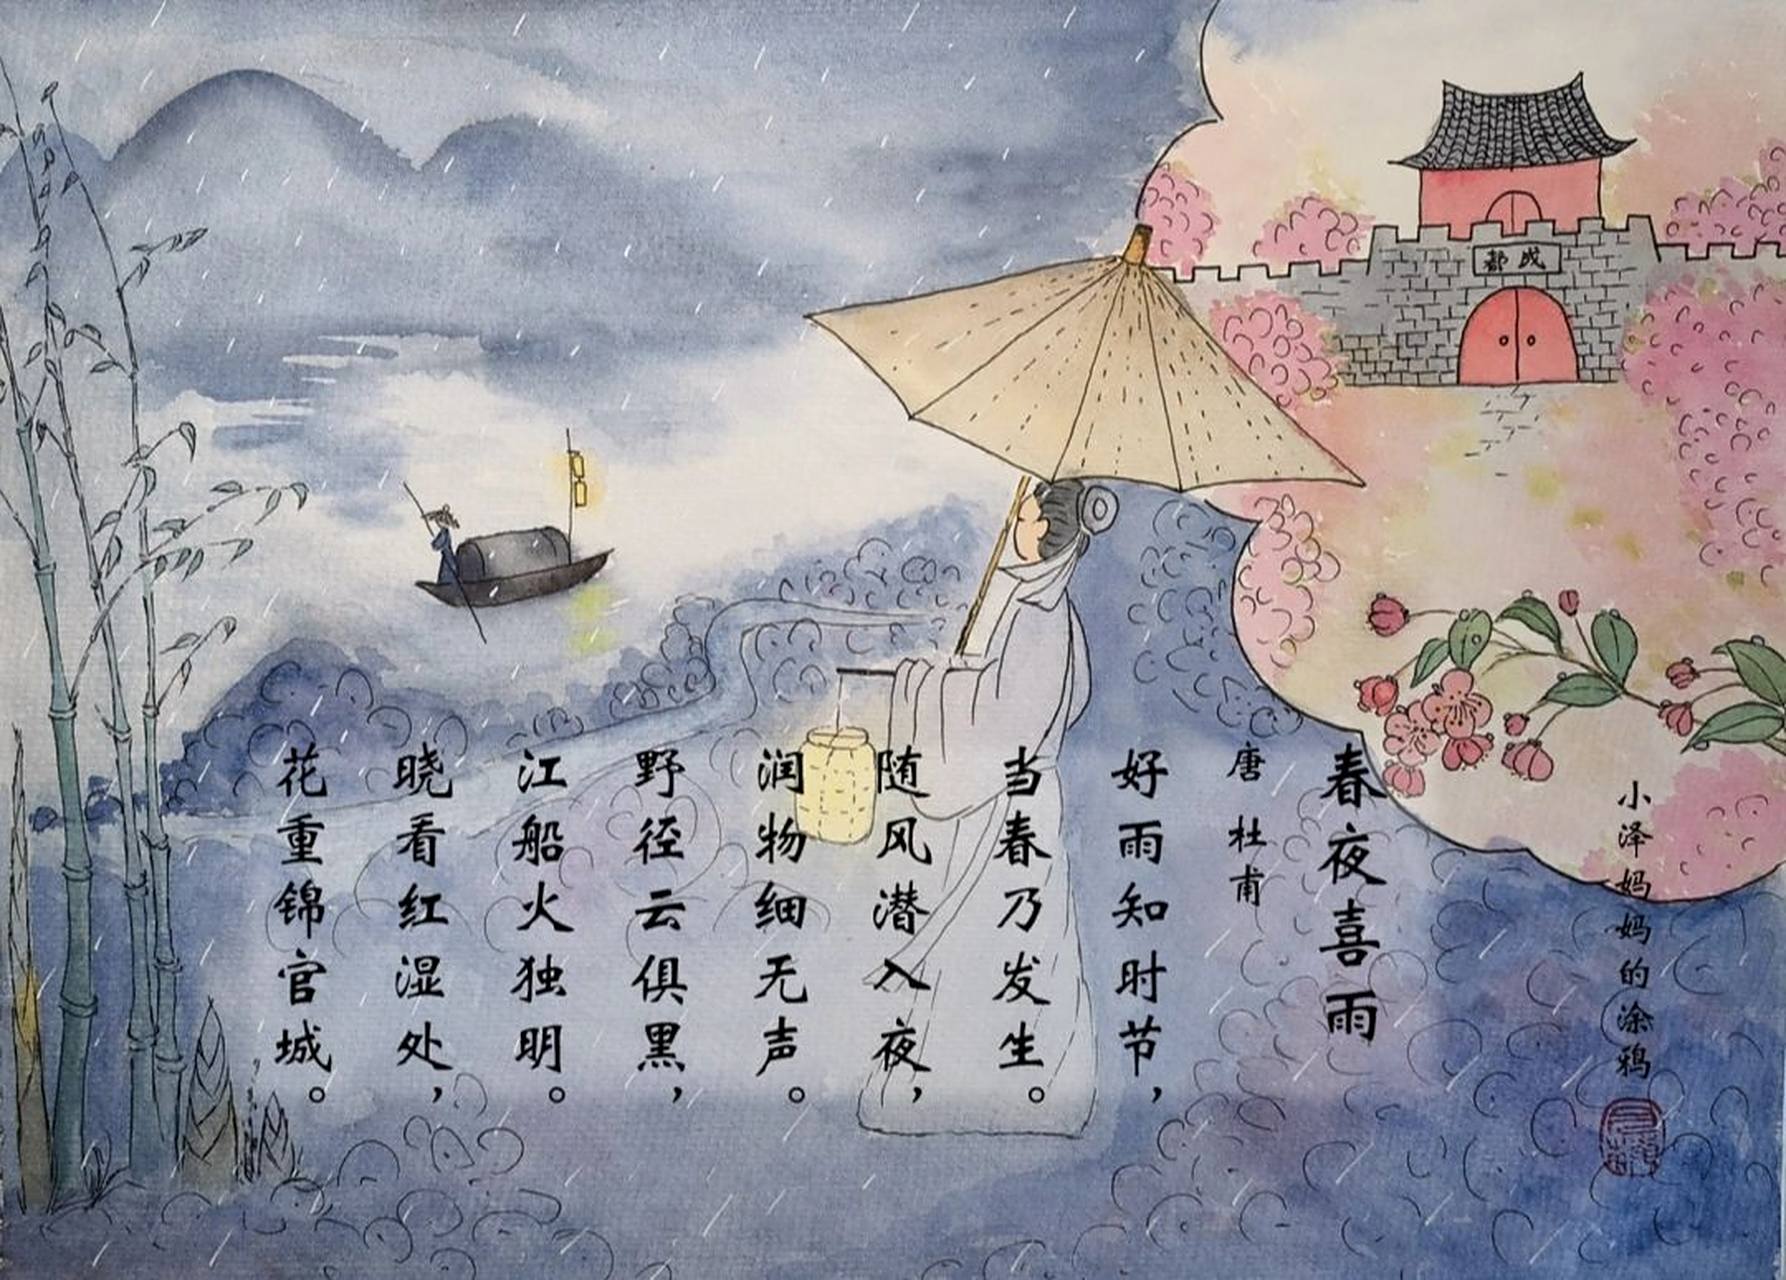 小泽妈妈的涂鸦
春夜喜雨
唐 杜甫
好雨知时节，
当春乃发生。
随风潜入夜，
润物细无声。
野径云俱黑，
江船火独明。
晓看红湿处，
花重锦官城。
成都